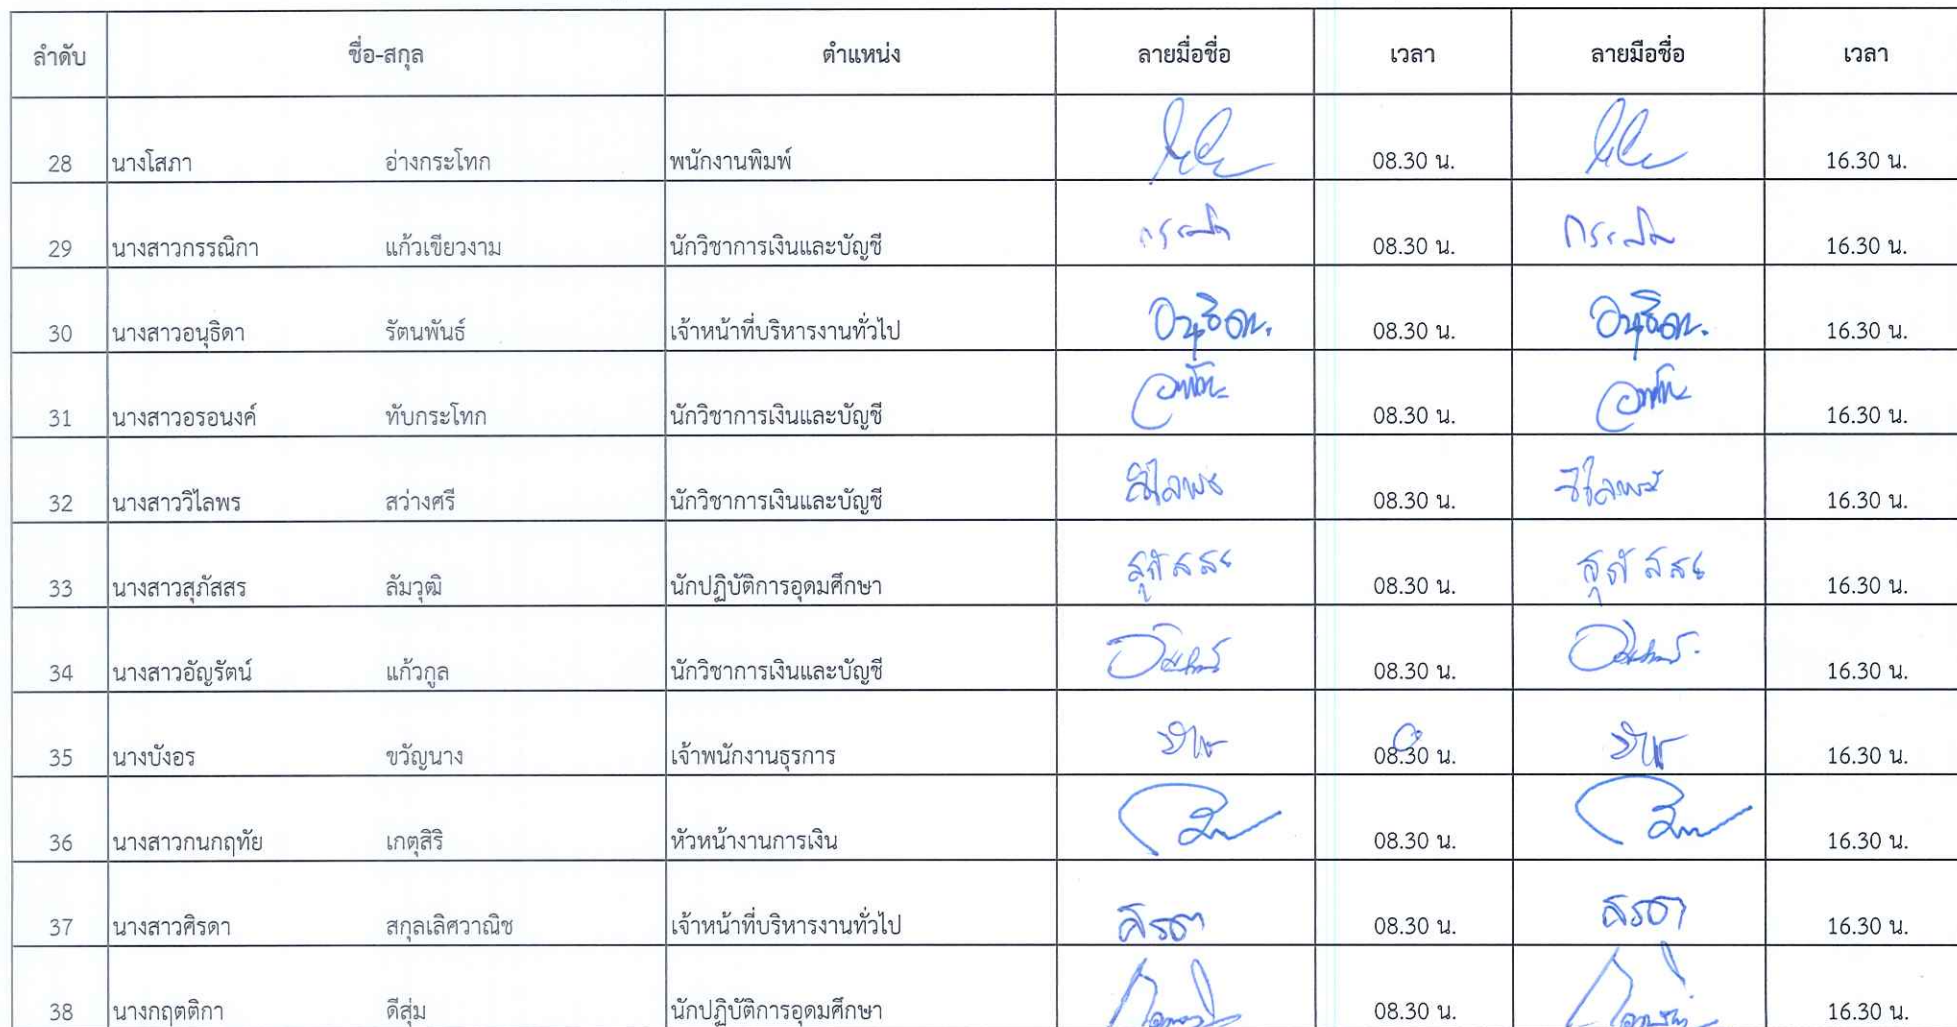 ลำดับ ชื่อ-สกุล ตำแหน่ง ลายมื่อชื่อ เวลา ลายมือชื่อ เวลา
28 นางโสภา อ่างกระโทก พนักงานพิมพ์ 08.30 น. 16.30 น.
29 นางสาวกรรณิกา แก้วเขียวงาม นักวิชาการเงินและบัญชี 08.30 น. 16.30 น.
30 นางสาวอนุธิดา รัตนพันธ์ เจ้าหน้าที่บริหารงานทั่วไป อนุธิดา. 08.30 น. อนุธิดา. 16.30 น.
31 นางสาวอรอนงค์ ทับกระโทก นักวิชาการเงินและบัญชี 08.30 น. 16.30 น.
32 นางสาววิไลพร สว่างศรี นักวิชาการเงินและบัญชี วิไลพร 08.30 น. วิไลพร 16.30 น.
33 นางสาวสุภัสสร ลัมวุฒิ นักปฏิบัติการอุดมศึกษา สุภัสสร 08.30 น. สุภัสสร 16.30 น.
34 นางสาวอัญรัตน์ แก้วกูล นักวิชาการเงินและบัญชี 08.30 น. 16.30 น.
35 นางบังอร ขวัญนาง เจ้าพนักงานธุรการ 08.30 น. 16.30 น.
36 นางสาวกนกฤทัย เกตุสิริ หัวหน้างานการเงิน 08.30 น. 16.30 น.
37 นางสาวศิรดา สกุลเลิศวาณิช เจ้าหน้าที่บริหารงานทั่วไป ศิรดา 08.30 น. ศิรดา 16.30 น.
38 นางกฤตติกา ดีสุ่ม นักปฏิบัติการอุดมศึกษา 08.30 น. 16.30 น.